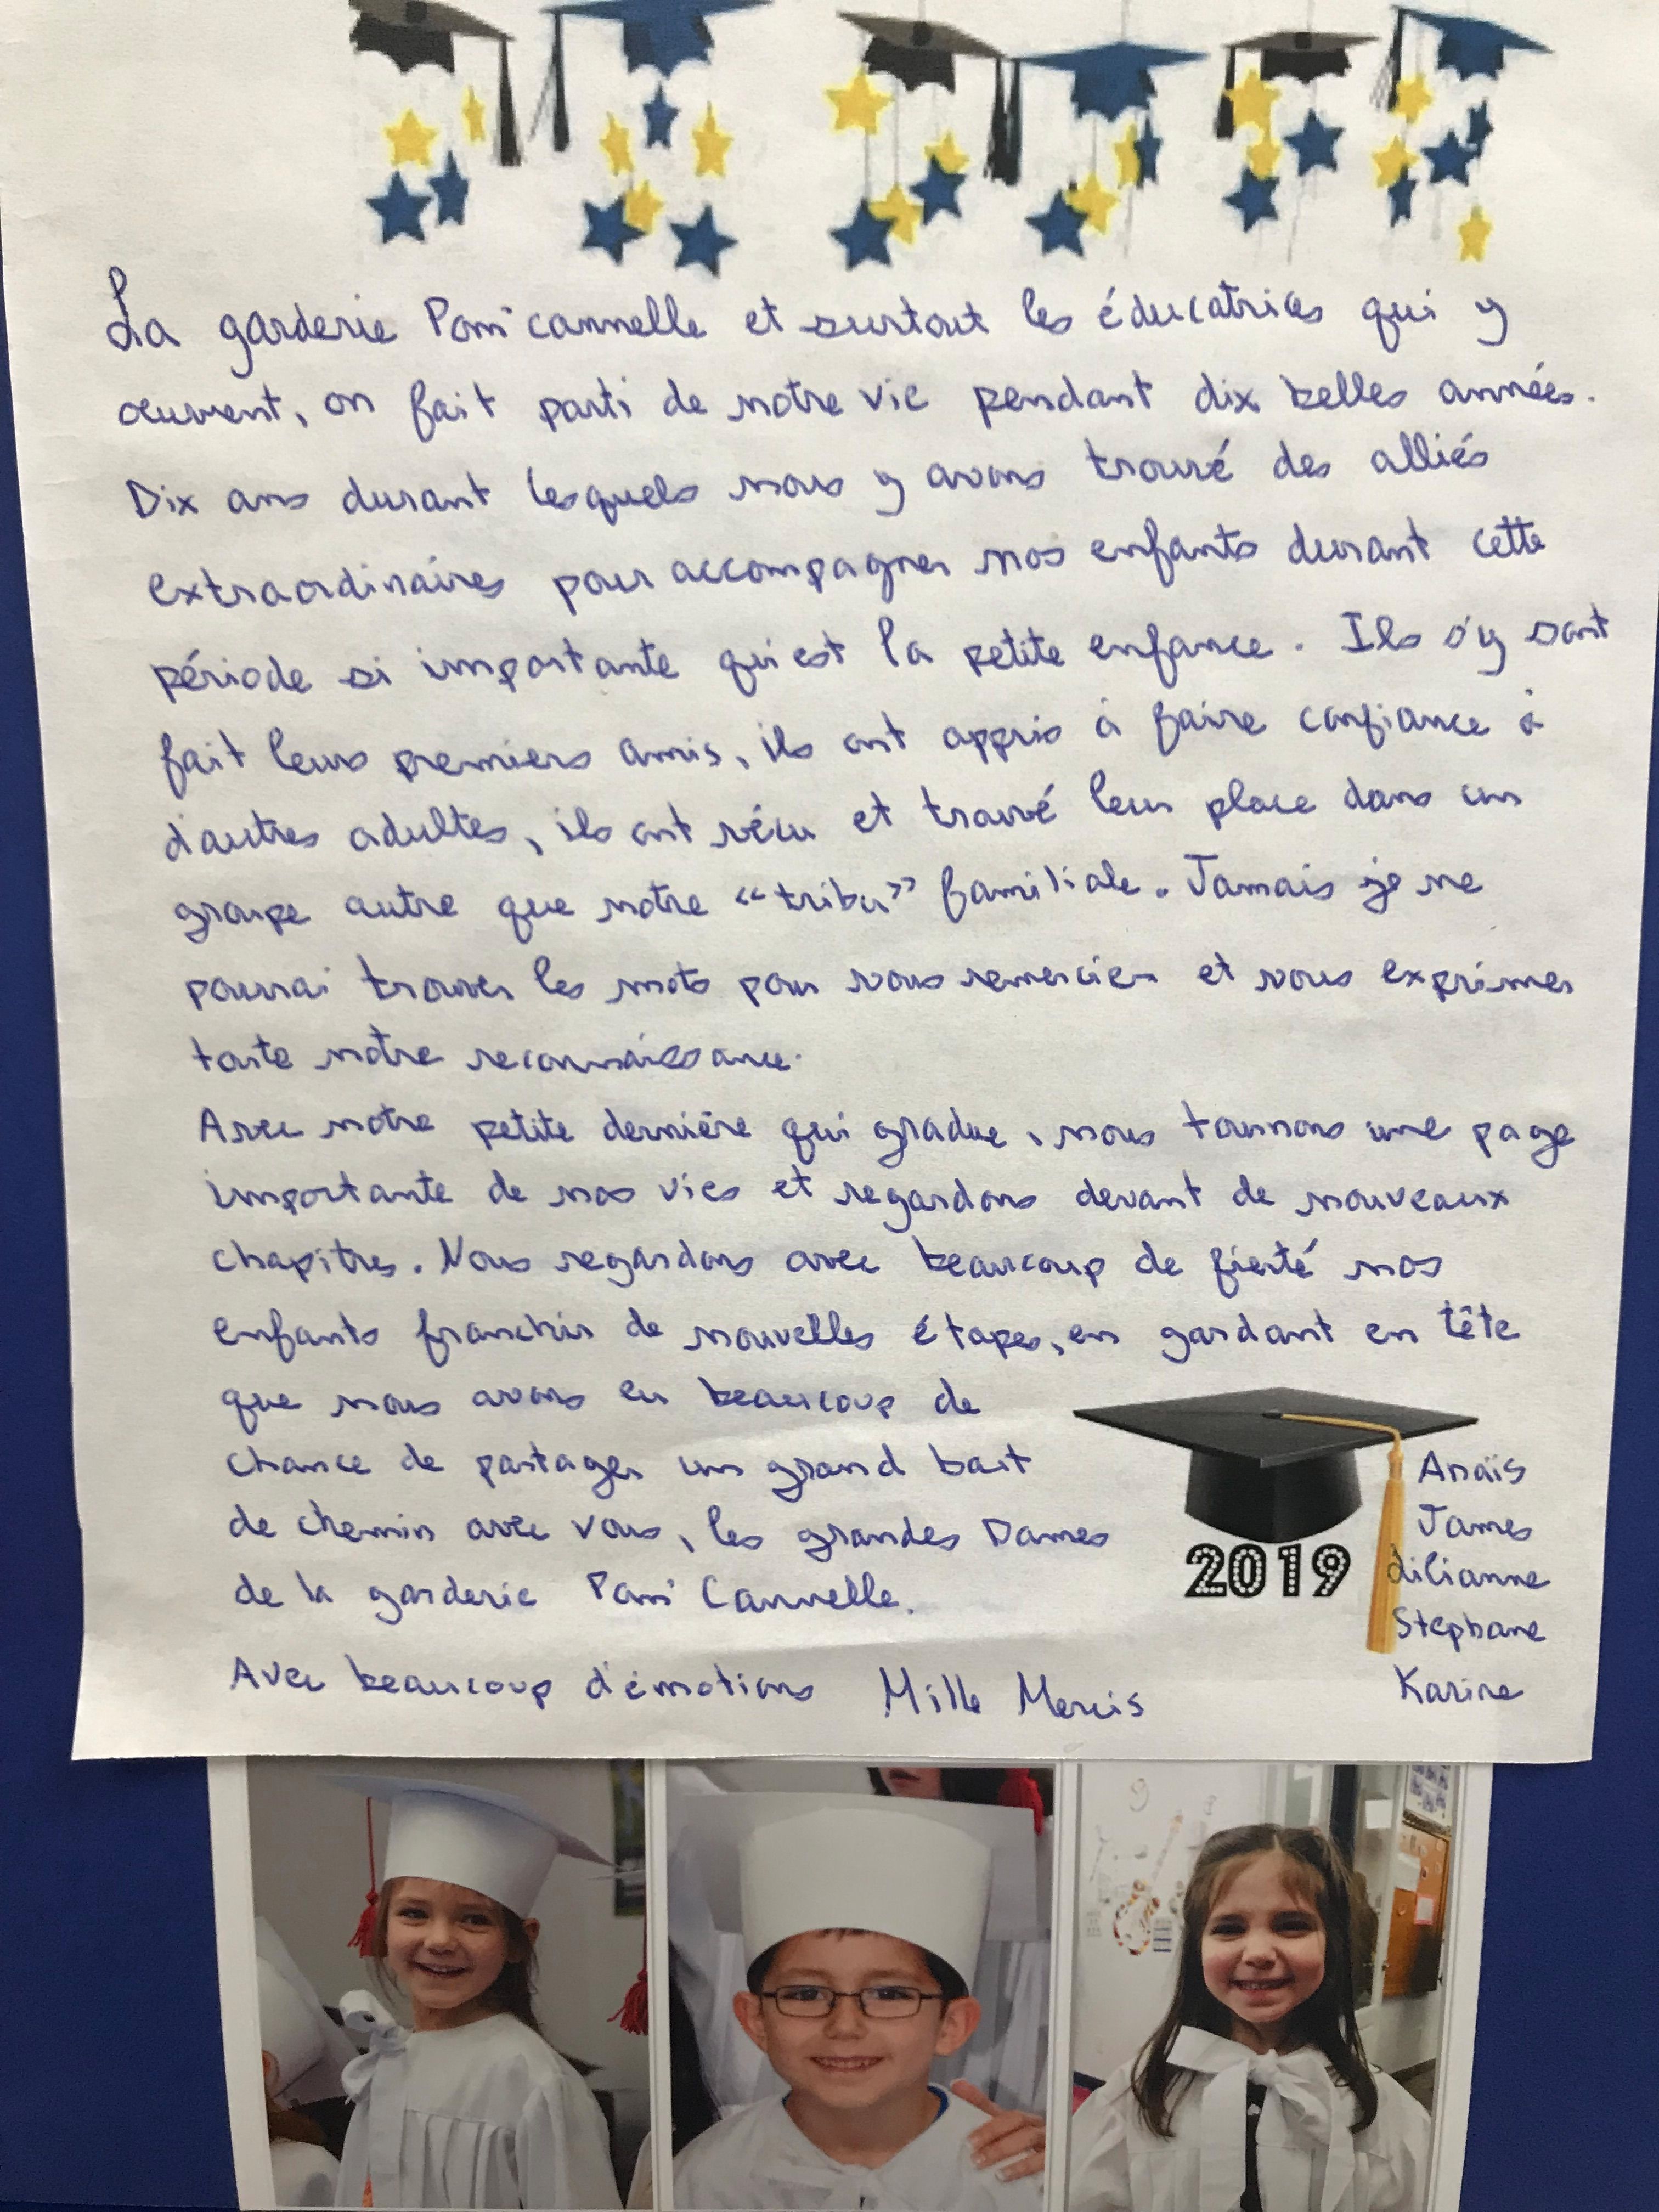 La garderie Pom'cannelle et surtout les éducatrices qui y
œuvrent, on fait parti de notre vie pendant dix belles années.
Dix ans durant lesquels nous y avons trouvé des alliés
extraordinaires pour accompagner nos enfants durant cette
période si importante qu'est la petite enfance. Ils s'y sont
fait leurs premiers amis, ils ont appris à faire confiance à
d'autres adultes, ils ont vécu et trouvé leur place dans un
groupe autre que notre "tribu" familiale. Jamais je ne
pourrai trouver les mots pour vous remercier et vous exprimer
toute notre reconnaissance.
Avec notre petite dernière qui gradue, nous tournons une page
importante de nos vies et regardons devant de nouveaux
chapitres. Nous regardons avec beaucoup de fierté nos
enfants franchir de nouvelles étapes, en gardant en tête
que nous avons eu beaucoup de
chance de partager un grand bout
de chemin avec vous, les grandes Dames
de la garderie Pom' Cannelle.
Avec beaucoup d'émotions Mille Mercis
2019
Anaïs
James
Lilianne
Stephane
Karine